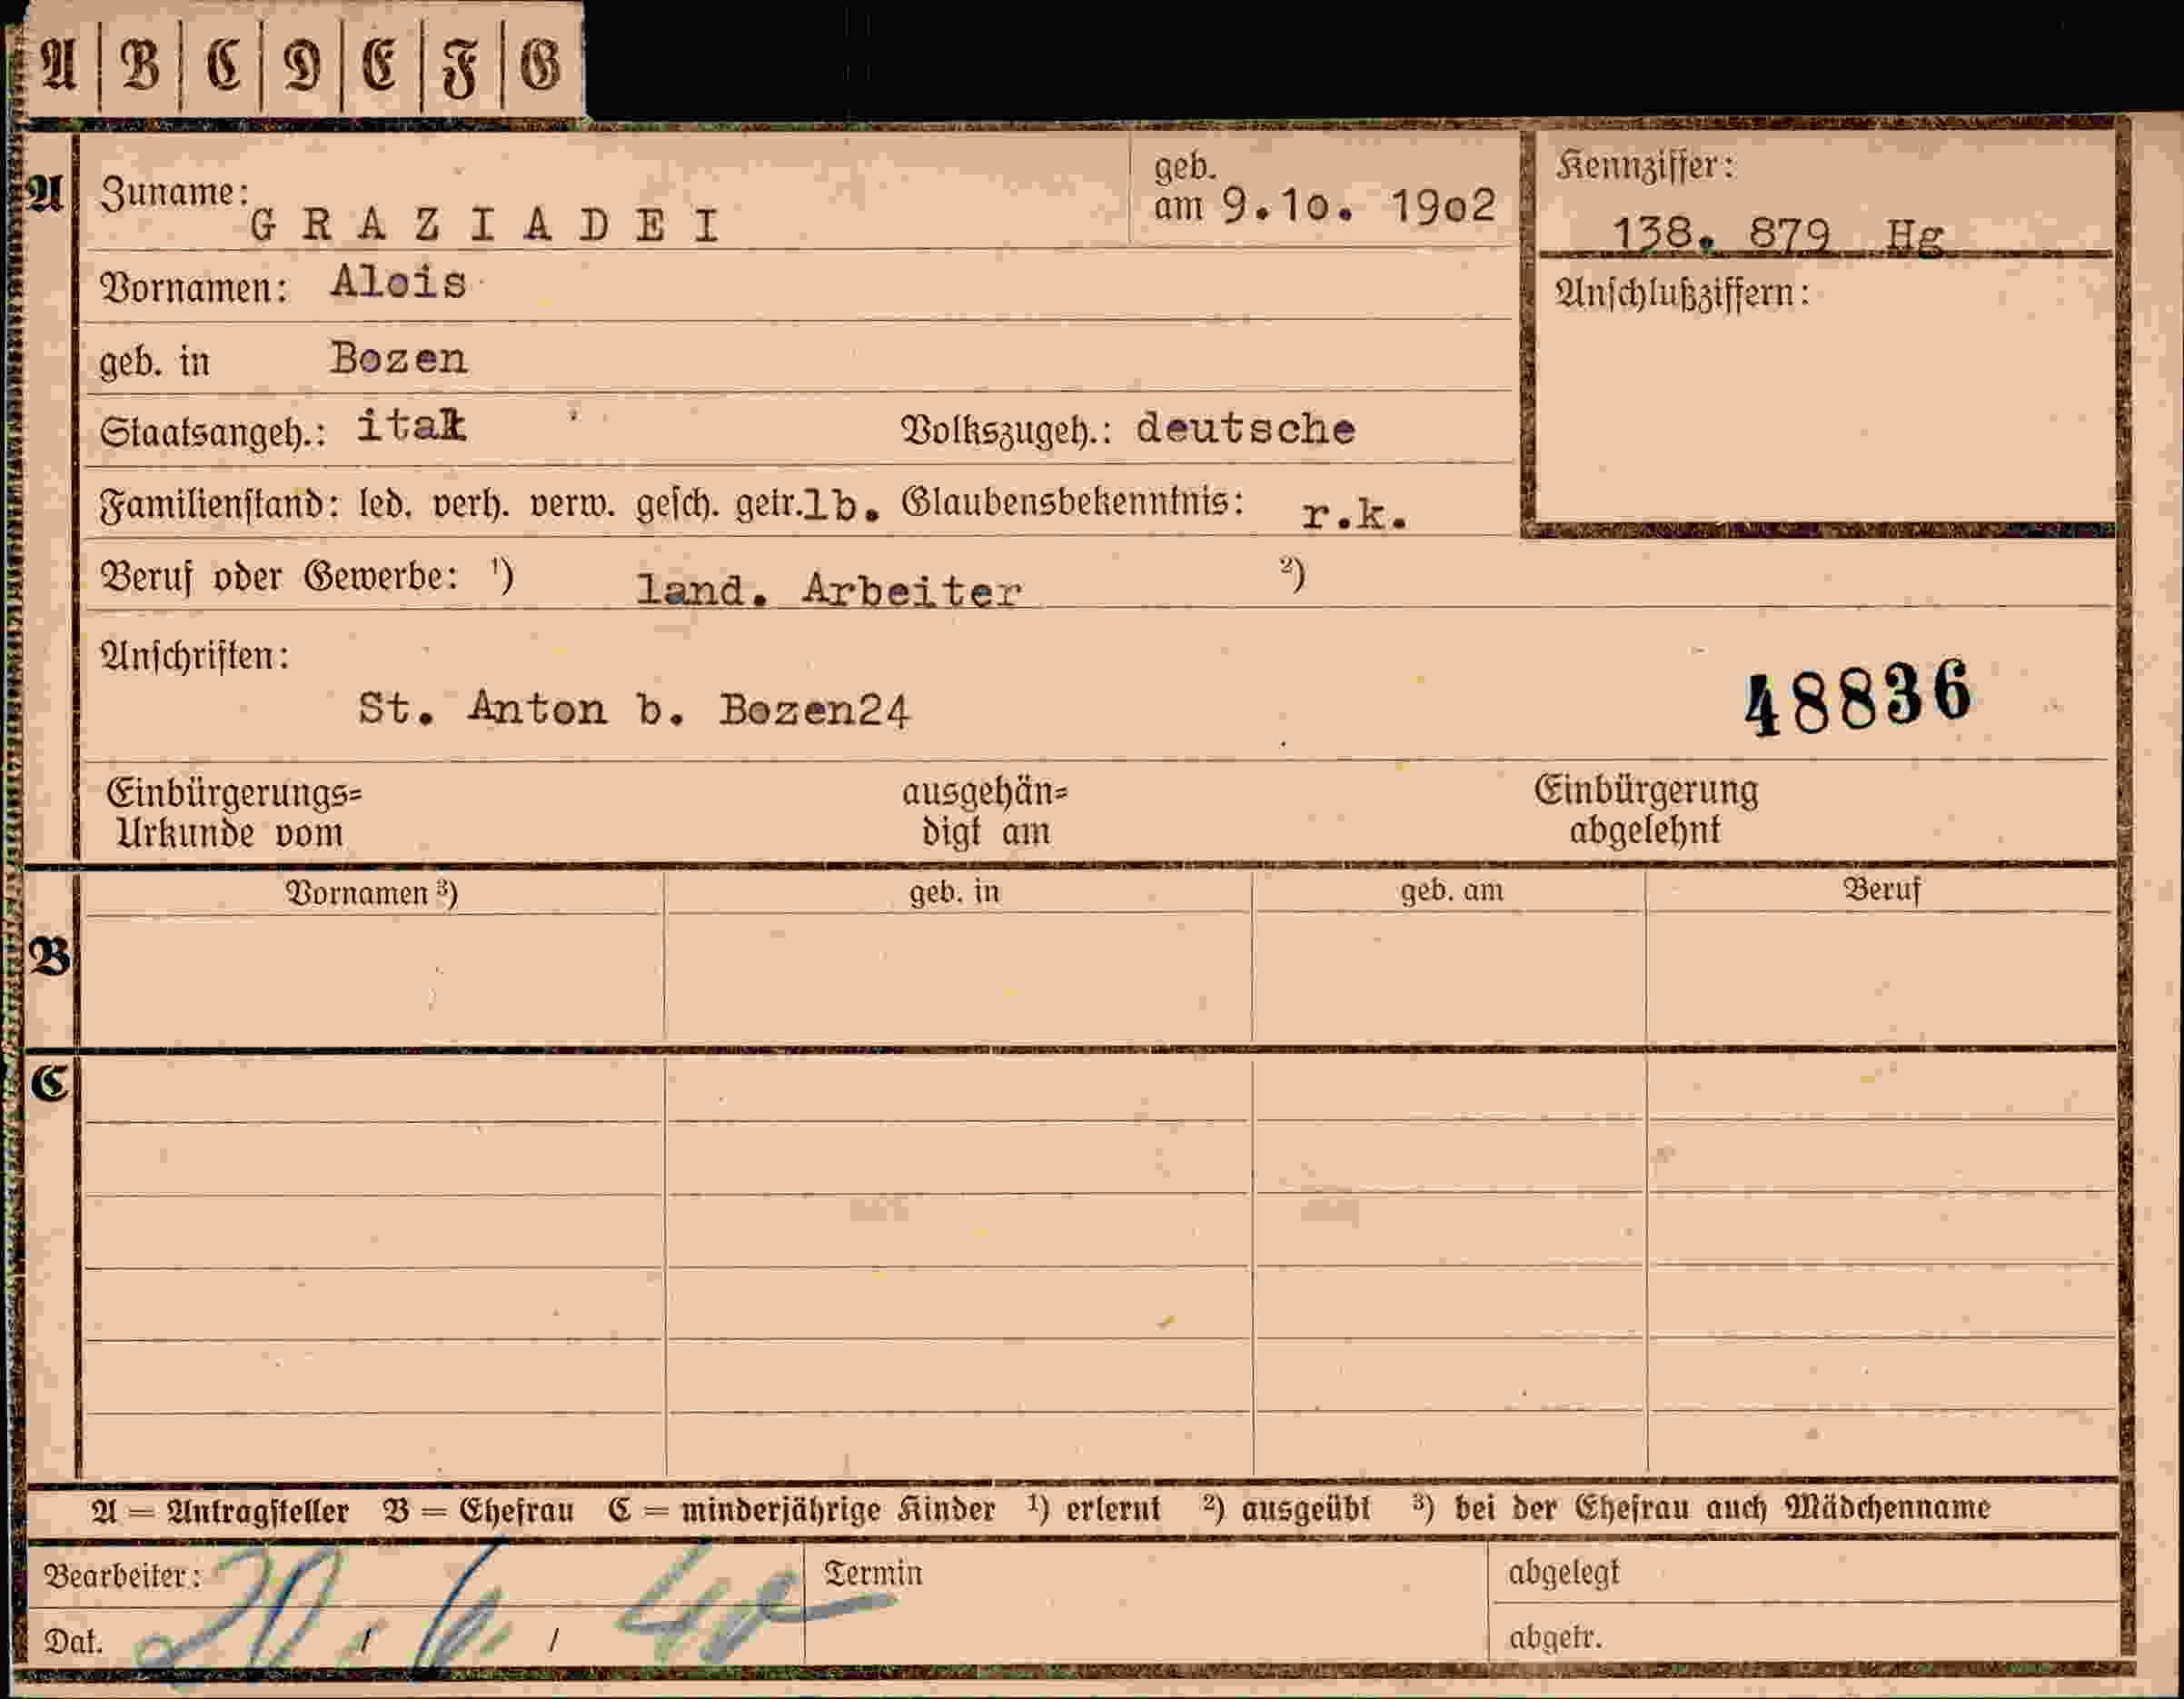 A B C D E F G
A
Zuname: GRAZIADEI
geb. am 9.10. 1902
Kennziffer: 138. 879 Hg
Vornamen: Alois
Anschlußziffern:
geb. in Bozen
Staatsangeh.: ital Volkszugeh.: deutsche
Familienstand: led. verh. verw. gesch. getr. lb. Glaubensbekenntnis: r.k.
Beruf oder Gewerbe: 1) land. Arbeiter 2)
Anschriften:
St. Anton b. Bozen24
48836
Einbürgerungs=
Urkunde vom
ausgehän=
digt am
Einbürgerung
abgelehnt
Vornamen 3) geb. in geb. am Beruf
B
C
A = Antragsteller B = Ehefrau C = minderjährige Kinder 1) erlernt 2) ausgeübt 3) bei der Ehefrau auch Mädchenname
Bearbeiter: Termin abgelegt
Dat. 20. / 6. / 40 abgetr.